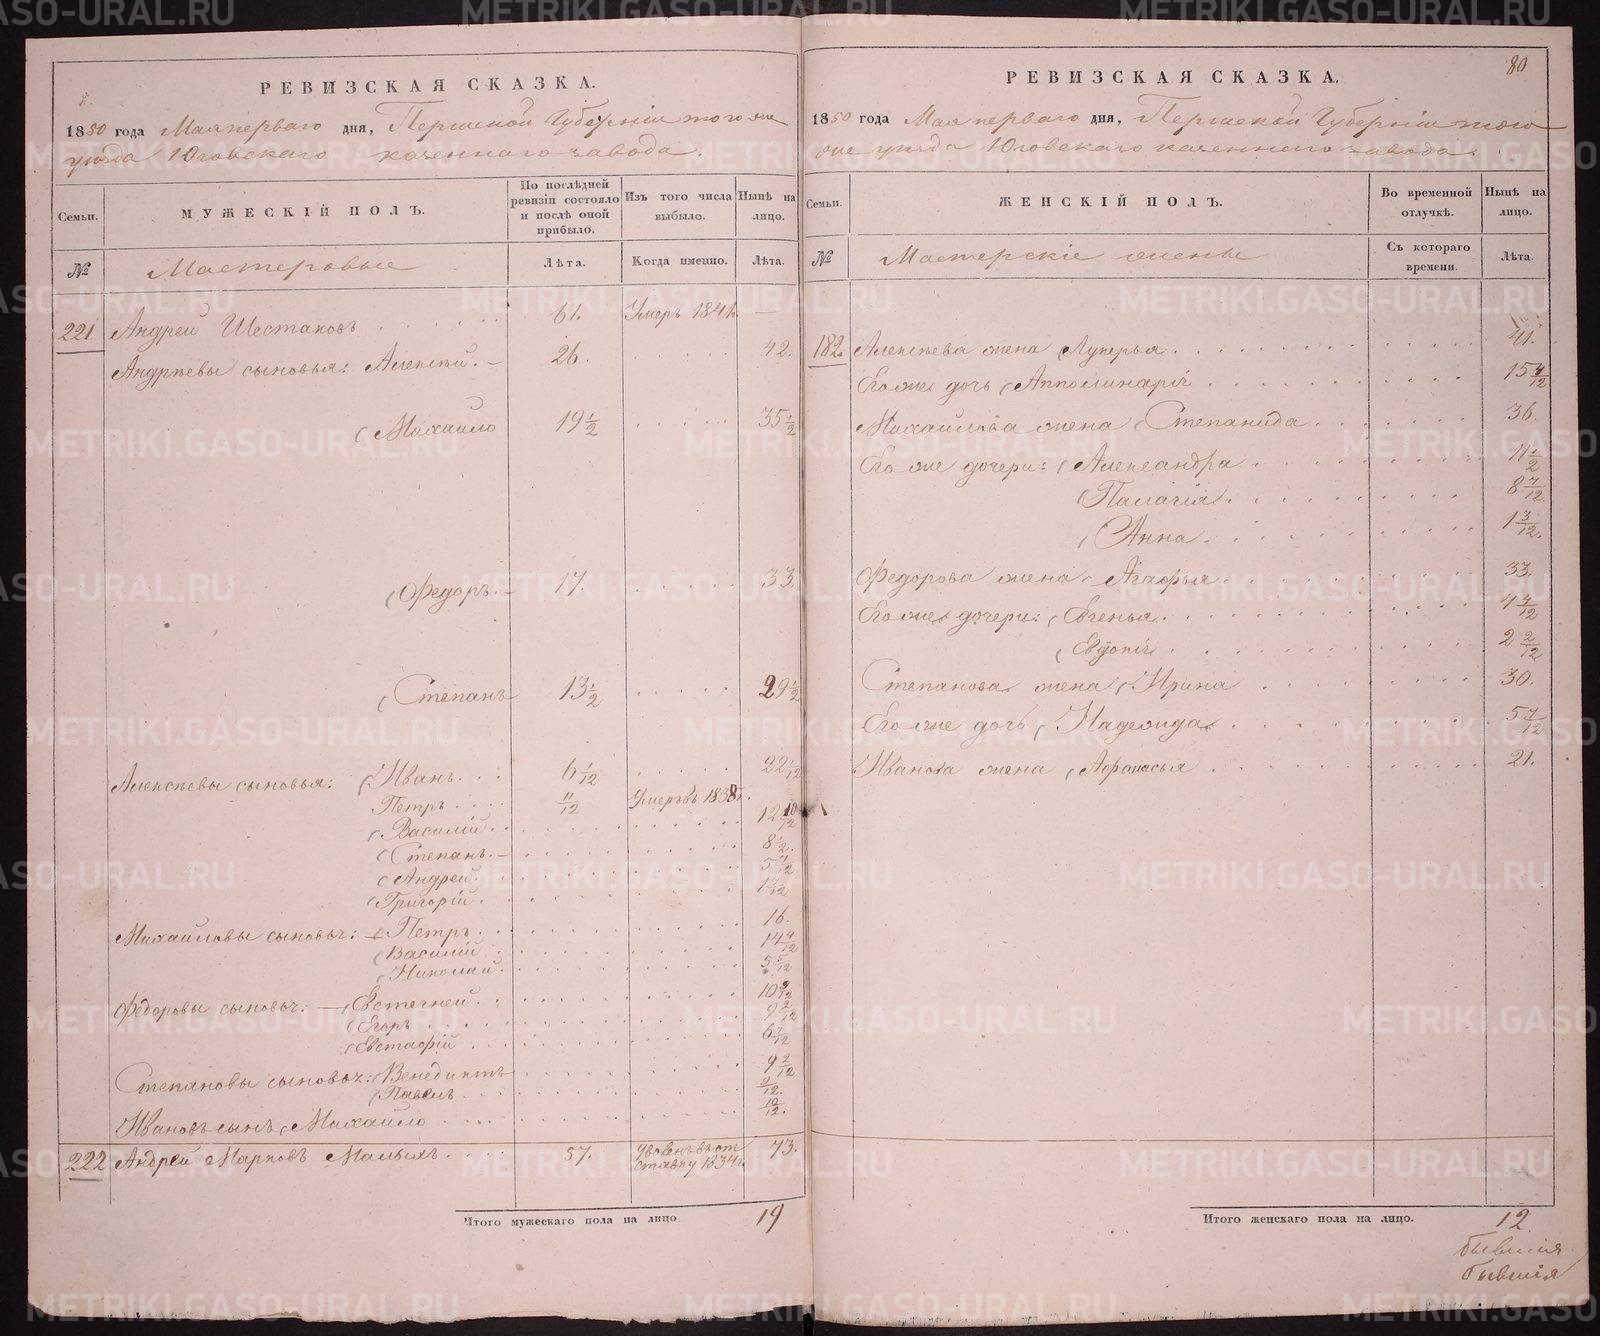 РЕВИЗСКАЯ СКАЗКА.
1850 года Мая перваго дня, Пермской Губерніи того же
уезда Юговскаго казеннаго завода.
Семьи.
МУЖЕСКІЙ ПОЛЪ.
По послѣдней ревизіи состояло и послѣ оной прибыло.
Изъ того числа выбыло.
Нынѣ на лицо.
№ Мастеровые Лѣта. Когда именно. Лѣта.
221 Андрей Шестаковъ 61. Умеръ 1841.
Андреевы сыновья: Алексѣй. 26. 42.
Михайло 19 1/2 35 1/2
Федоръ. 17. 33
Степанъ 13 1/2 29 1/2
Алексѣевы сыновья: Иванъ 6 1/12 22 1/12
Петръ 11/12 Умеръ въ 1838 г.
Василій 12 10/12
Степанъ 8 1/2.
Андрей 5 7/12
Григорій 1 7/12
Михайловы сыновья: Петръ 16.
Василій 14 4/12
Николай 5 5/12
Федоровы сыновья: Евстегней 10 9/12
Егоръ 9 2/12
Евстафій 6 7/12
Степановы сыновья: Венедиктъ 9 2/12
Павелъ 9/12.
Ивановъ сынъ, Михайло 10/12.
222 Андрей Марковъ Малыхъ 57. Уволенъ въ отставку 1834 г. 73.
Итого мужескаго пола на лицо 19
80
РЕВИЗСКАЯ СКАЗКА.
1850 года Мая перваго дня, Пермской Губерніи того
же уезда Юговскаго казеннаго завода.
Семьи.
ЖЕНСКІЙ ПОЛЪ.
Во временной отлучкѣ.
Нынѣ на лицо.
№ Мастерскіе жены Съ котораго времени. Лѣта.
182. Алексѣева жена Лукерья 41.
Его же дочь Апполинарія 15 4/12
Михайлова жена Степанида 36.
Его же дочери: Александра 11 1/2
Палагія 8 7/12
Анна 1 3/12.
Федорова жена Агафья 33.
Его же дочери: Евгенья 4 4/12
2 2/12
Степанова жена Ирина 30.
Его же дочь Надежда 5 7/12
Иванова жена Афанасья 21.
Итого женскаго пола на лицо. 12
бывшія
бывшія
METRIKI.GASO-URAL.RU